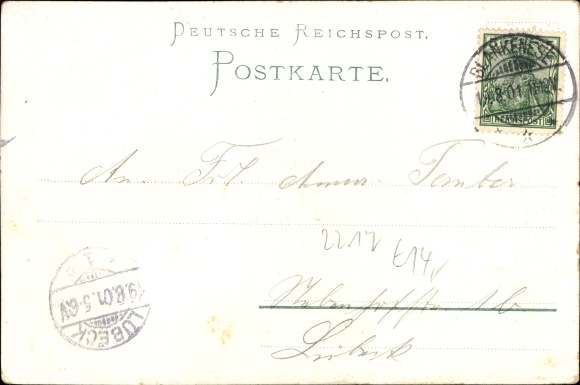 DEUTSCHE REICHSPOST.
POSTKARTE.
BLANKENESE
8.01
REICHSPOST
An Frl. Anna
2212
£14,
1b
Lübeck
LÜBECK
9.8.01.5-6V